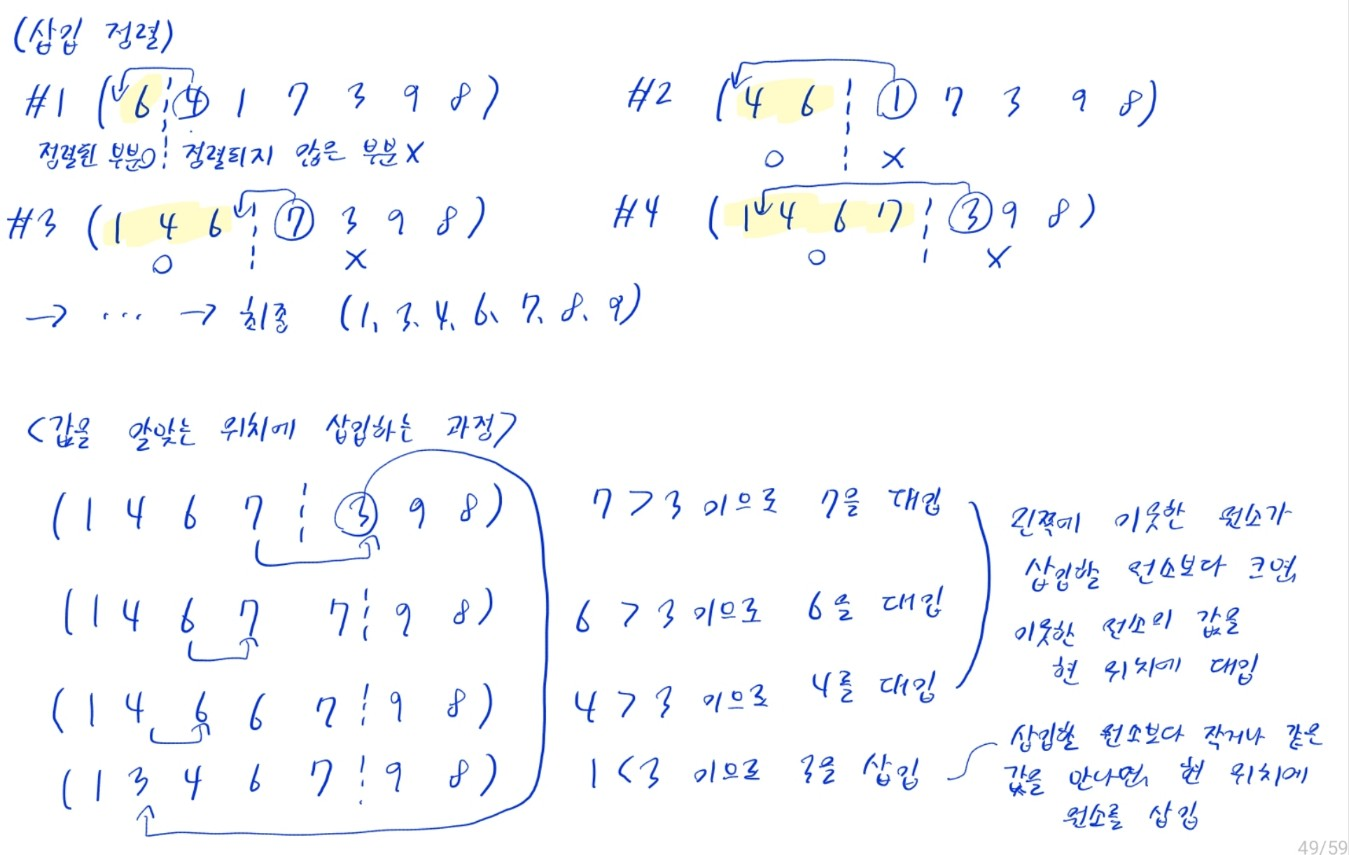 (삽입 정렬)
#1 (6 ④ 1 7 3 9 8)
정렬된 부분O 정렬되지 않은 부분X
#2 (4 6 ① 7 3 9 8)
O X
#3 (1 4 6 ⑦ 3 9 8)
O X
#4 (1 4 6 7 ③ 9 8)
O X
→ ... → 최종 (1, 3, 4, 6, 7, 8, 9)
<값을 알맞는 위치에 삽입하는 과정>
(1 4 6 7 ③ 9 8) 7 > 3 이므로 7을 대입
(1 4 6 7 7 9 8) 6 > 3 이므로 6을 대입
(1 4 6 6 7 9 8) 4 > 3 이므로 4를 대입
(1 3 4 6 7 9 8) 1 < 3 이므로 3을 삽입
왼쪽에 이웃한 원소가
삽입할 원소보다 크면,
이웃한 원소의 값을
현 위치에 대입
삽입할 원소보다 작거나 같은
값을 만나면, 현 위치에
원소를 삽입
49/59